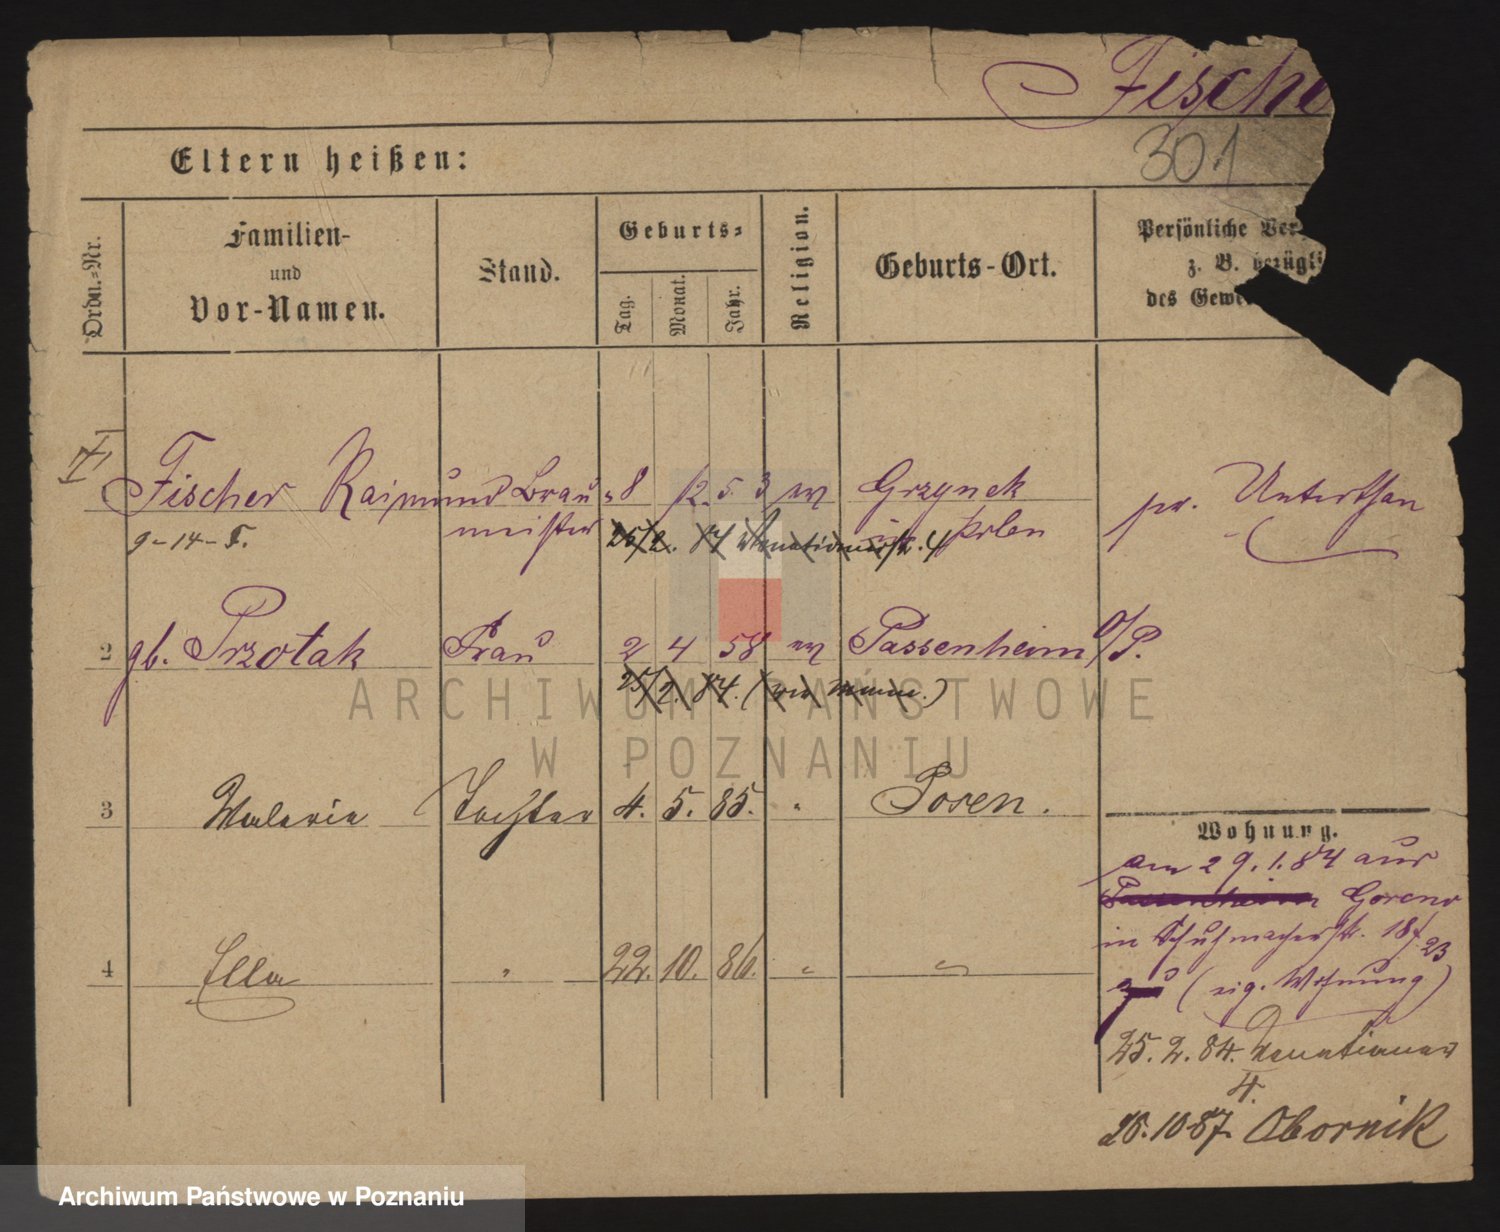 Fische
301
Eltern heißen:
Ordn.=Nr.
Familien-
und
Vor-Namen.
Stand.
Geburts=
Tag.
Monat.
Jahr.
Religion.
Geburts-Ort.
Persönliche Ver
z. B. bezügli
des Gewe
Fischer Raimund Brau- 8 12. 53 Grzynek pr. Unterthan
9-14-F. meister 25/2. 84 4 Polen
2 gb. Przotak Frau 2 4 58 Passenheim O/P.
25/2. 84. (
ARCHIWUM PAŃSTWOWE
W POZNANIU
3 Walerie Tochter 4. 5. 85. " Posen.
4 Ella " 22. 10. 86. " "
Wohnung.
am 29.1.84 aus
Passenheim
in Schuhmacherstr. 18
23
zu (eig. Wohnung)
25. 2. 84.
4.
26.10.87. Obornik
Archiwum Państwowe w Poznaniu